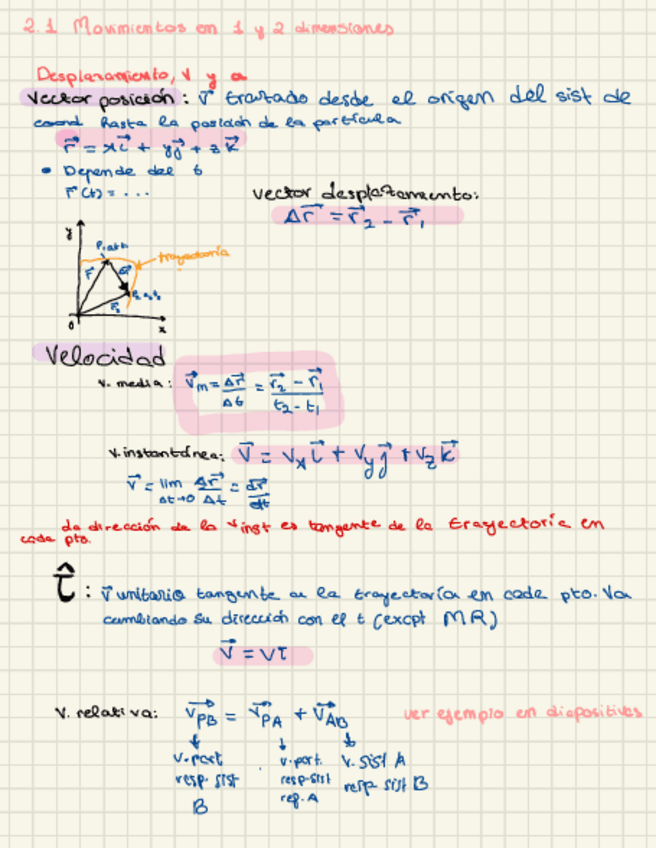 2.1 Movimientos en 1 y 2 dimensiones
Desplazamiento, v y a
Vector posición: v⃗ trazado desde el origen del sist de
coord hasta la posición de la partícula
r⃗ = xi⃗ + yj⃗ + zk⃗
• Depende del t
r⃗(t) = ...
vector desplazamiento:
Δr⃗ = r⃗₂ - r⃗₁
y
trayectoria
0
x
Velocidad
v. media: v⃗m = Δr⃗/Δt = (r⃗₂ - r⃗₁)/(t₂ - t₁)
v. instantánea: v⃗ = vₓi⃗ + v_yj⃗ + v_zk⃗
v⃗ = lim Δt→0 Δr⃗/Δt = dr⃗/dt
La dirección de la vinst es tangente de la trayectoria en
cada pto.
τ̂: v⃗ unitario tangente a la trayectoria en cada pto. Va
cambiando su dirección con el t (excpt MR)
v⃗ = vτ
v. relativa: v⃗PB = v⃗PA + v⃗AB
ver ejemplo en diapositivas
↓ ↓ ↓
v. part v. part. v. sist A
resp. sist resp-sist resp sist B
B ref. A